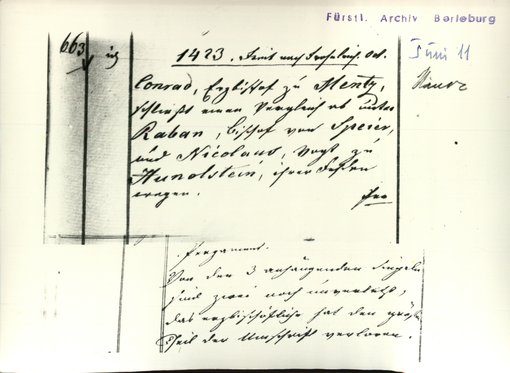 Fürstl. Archiv Berleburg
663
1423. Freit. nach Frohnleich. Oct.
Juni 11
Conrad, Erzbischof zu Mentz,
Mainz
schließt einen Vergleich ab unter
Raban, Bischof von Speier,
und Nicolaus, Vogt zu
Hunolstein, ihrer Fehden
wegen.
Pergament.
Von den 3 anhängenden Siegeln
sind zwei noch unverletzt,
das erzbischöfliche hat den größten
Theil der Umschrift verloren.